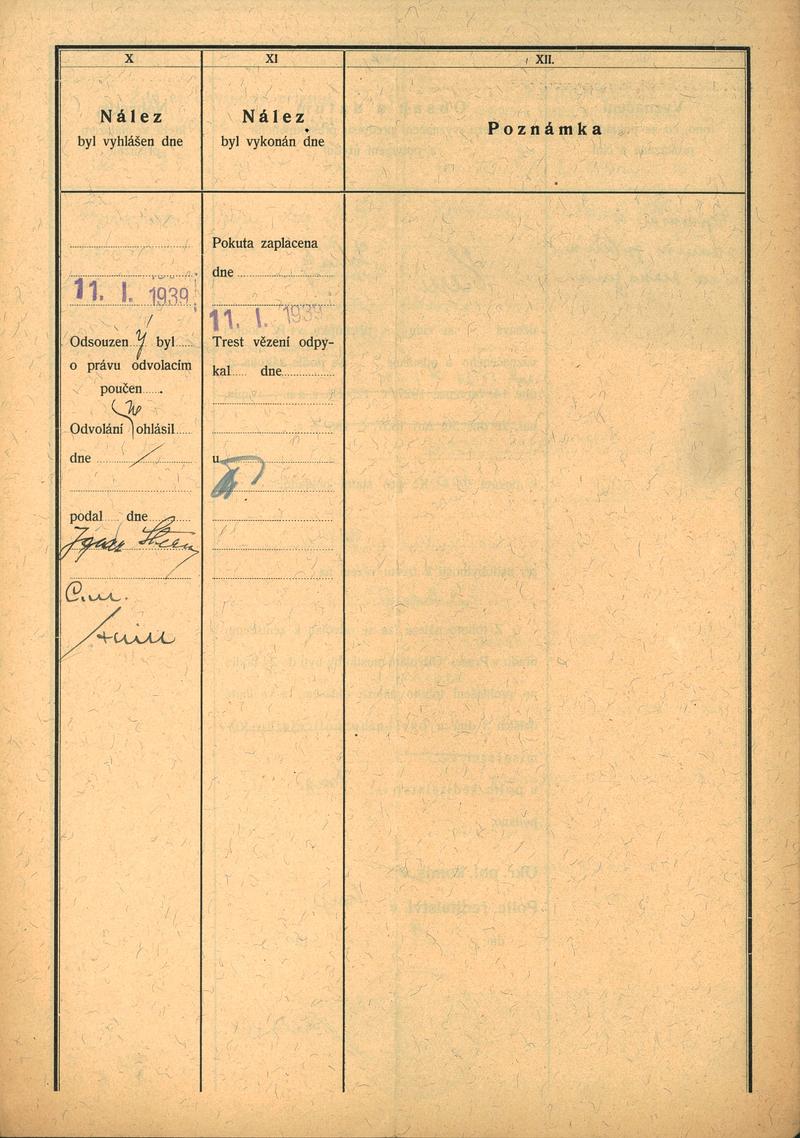 X
Nález
byl vyhlášen dne
11. I. 1939
Odsouzen ý byl
o právu odvolacím
poučen
Odvolání ne ohlásil
dne /
podal dne
Ignaz Stern
XI
Nález
byl vykonán dne
Pokuta zaplacena
dne
11. I. 1939
Trest vězení odpy-
kal dne
u
XII.
Poznámka